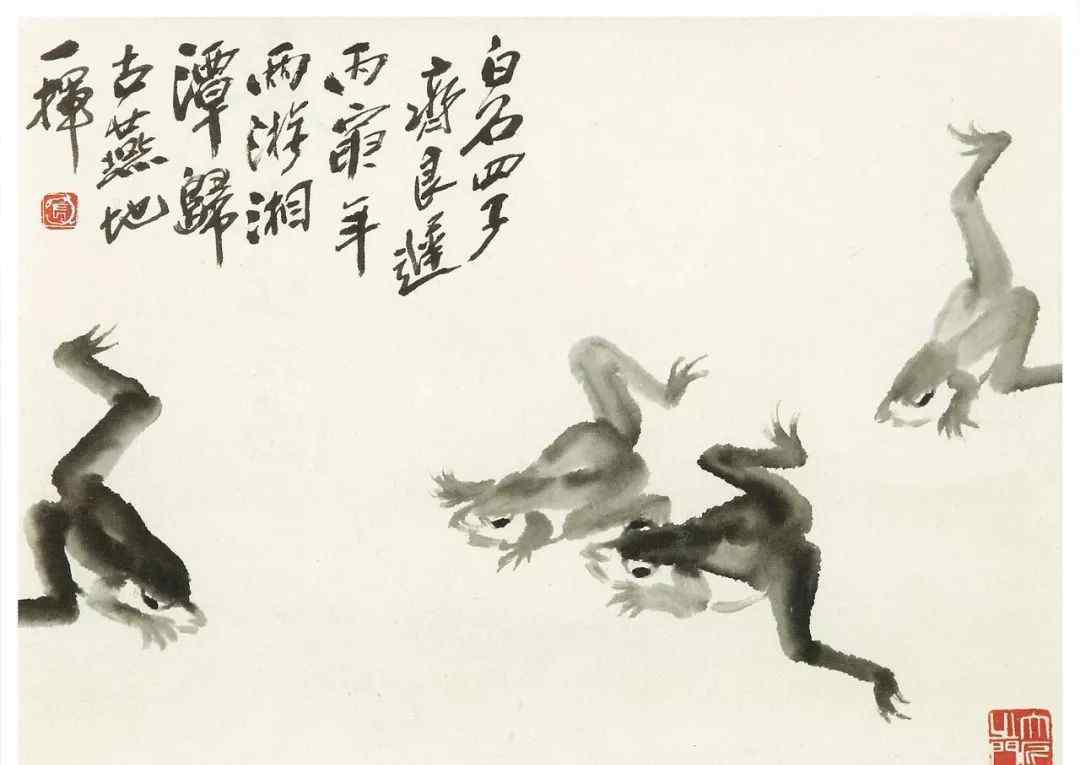 白石四子
齊良遲
丙寅年
兩游湘
潭歸
古燕地
一揮
大匠之門